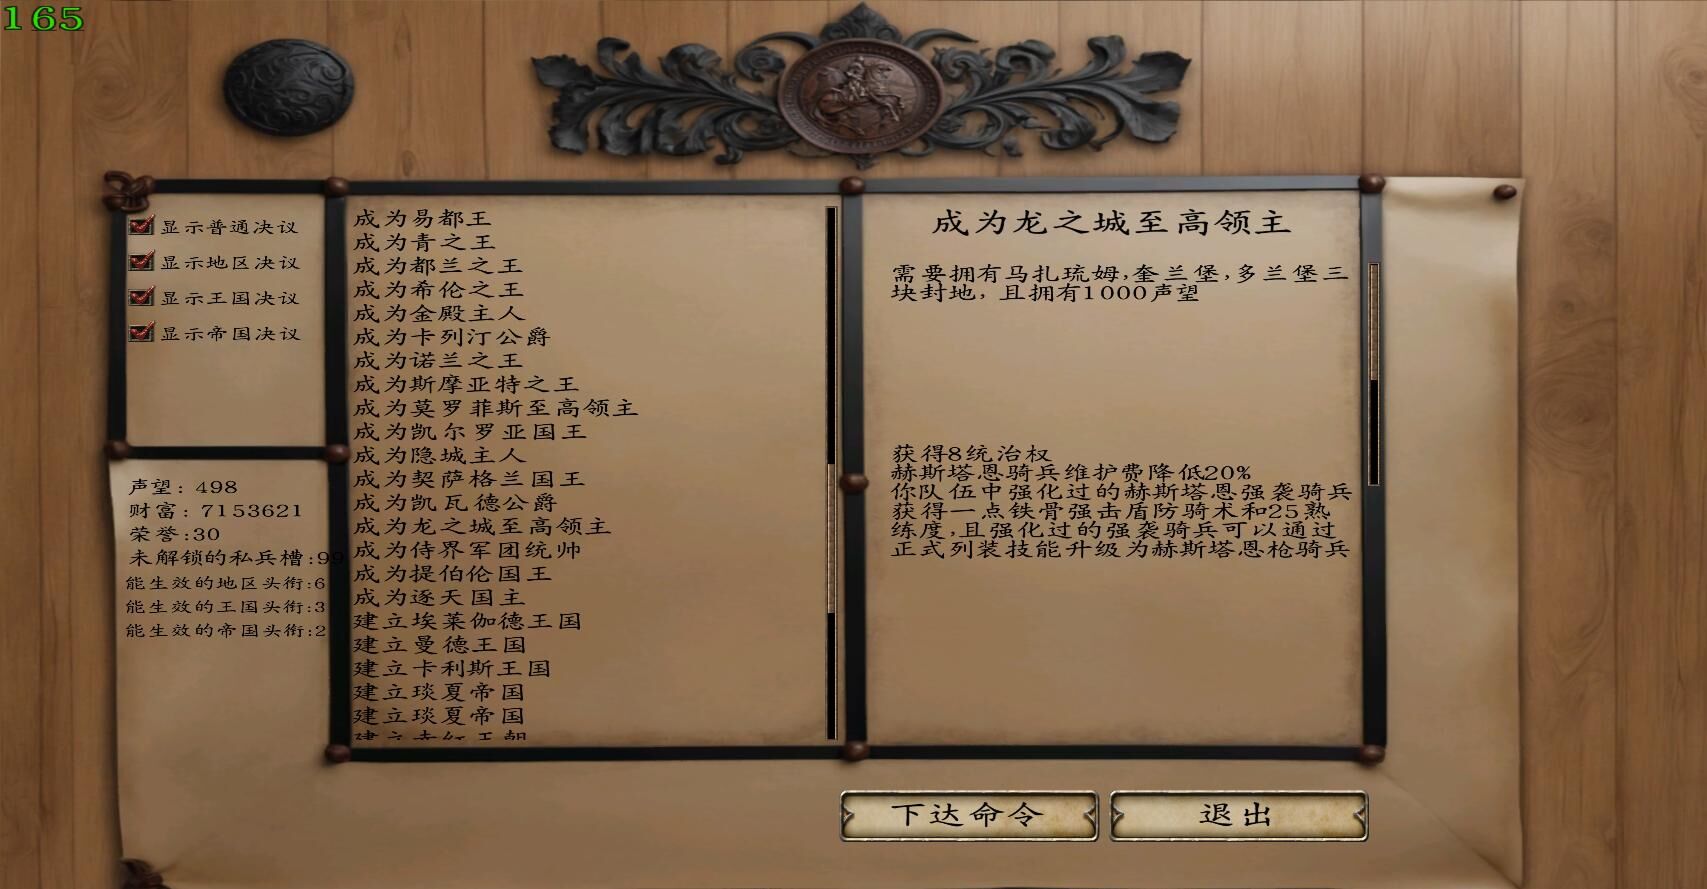 165
显示普通决议
显示地区决议
显示王国决议
显示帝国决议
声望: 498
财富: 7153621
荣誉:30
未解锁的私兵槽:99
能生效的地区头衔:6
能生效的王国头衔:3
能生效的帝国头衔:2
成为易都王
成为青之王
成为都兰之王
成为希伦之王
成为金殿主人
成为卡列汀公爵
成为诺兰之王
成为斯摩亚特之王
成为莫罗菲斯至高领主
成为凯尔罗亚国王
成为隐城主人
成为契萨格兰国王
成为凯瓦德公爵
成为龙之城至高领主
成为侍界军团统帅
成为提伯伦国王
成为逐天国主
建立埃莱伽德王国
建立曼德王国
建立卡利斯王国
建立琰夏帝国
建立琰夏帝国
成为龙之城至高领主
需要拥有马扎琉姆,奎兰堡,多兰堡三
块封地, 且拥有1000声望
获得8统治权
赫斯塔恩骑兵维护费降低20%
你队伍中强化过的赫斯塔恩强袭骑兵
获得一点铁骨强击盾防骑术和25熟
练度,且强化过的强袭骑兵可以通过
正式列装技能升级为赫斯塔恩枪骑兵
下达命令
退出